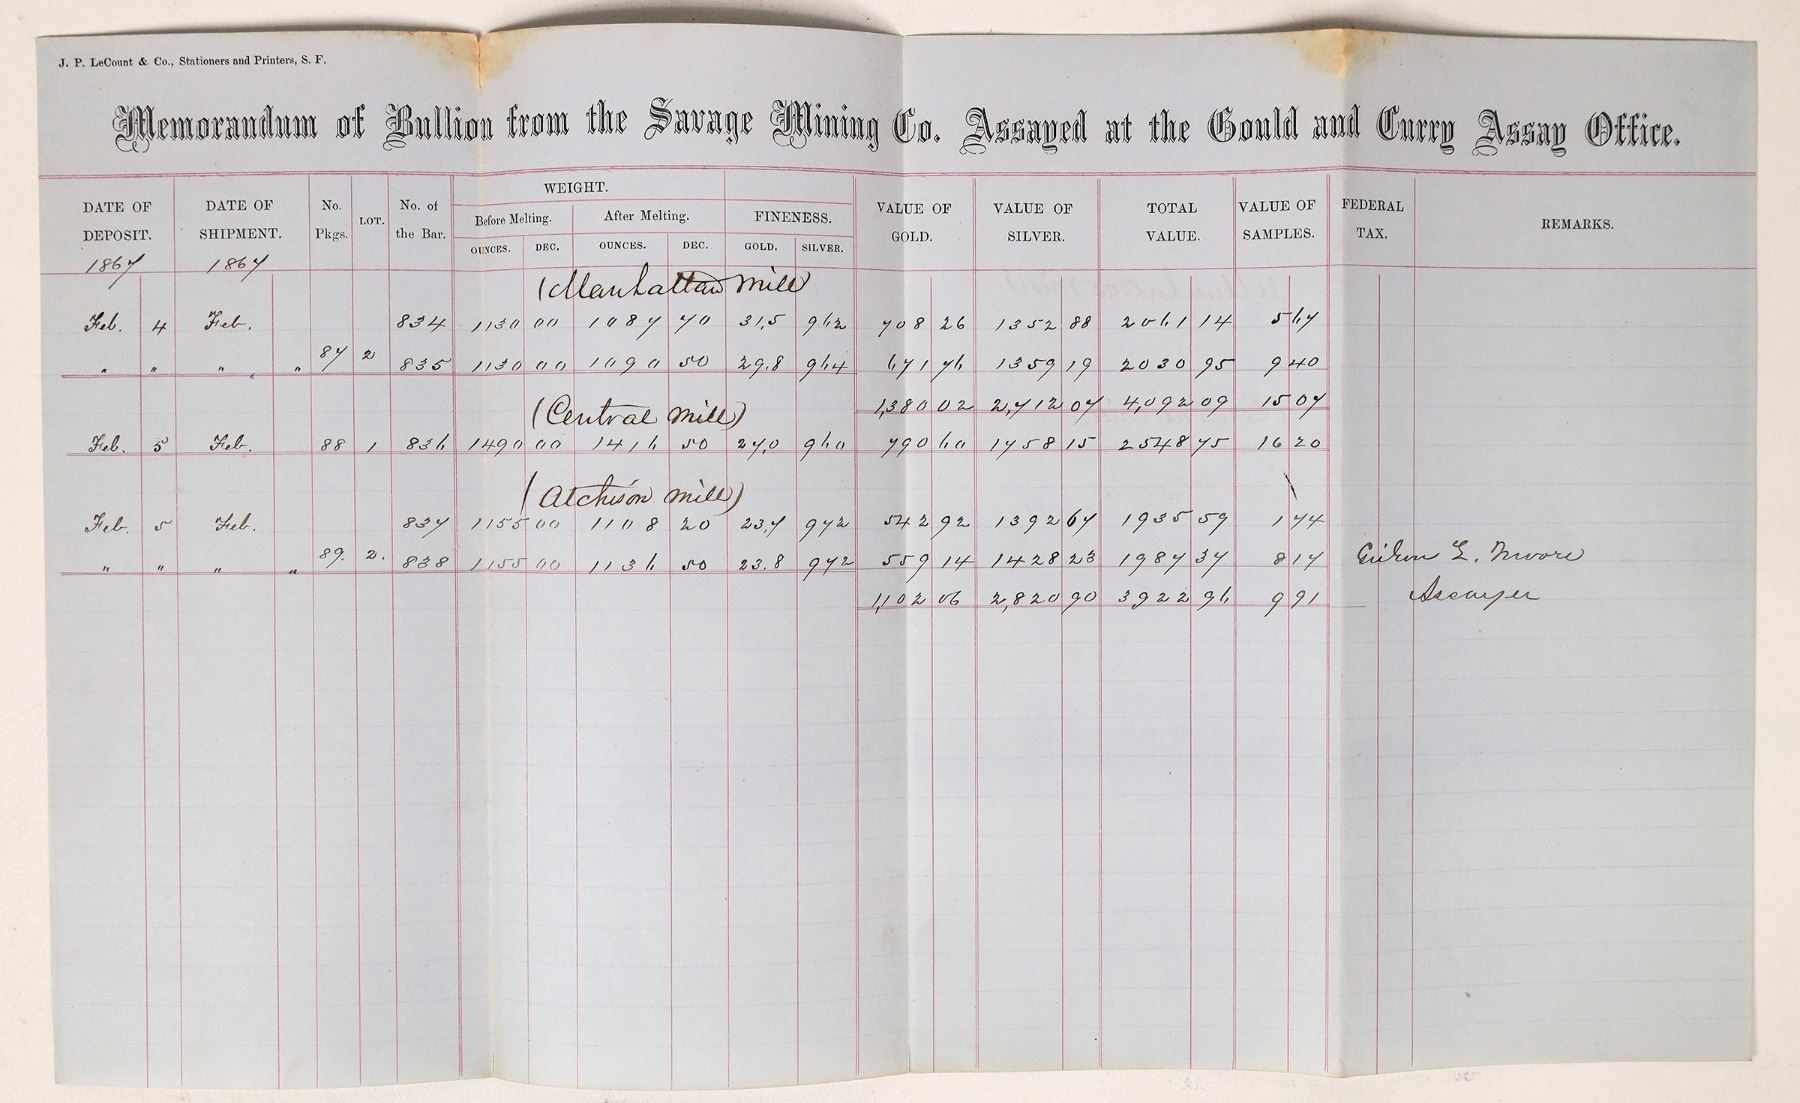 J. P. LeCount & Co., Stationers and Printers, S. F.
Memorandum of Bullion from the Savage Mining Co. Assayed at the Gould and Curry Assay Office.
DATE OF DEPOSIT. DATE OF SHIPMENT. No. Pkgs. LOT. No. of the Bar. WEIGHT. Before Melting. OUNCES. DEC. After Melting. OUNCES. DEC. FINENESS. GOLD. SILVER. VALUE OF GOLD. VALUE OF SILVER. TOTAL VALUE. VALUE OF SAMPLES. FEDERAL TAX. REMARKS.
1867 1867
(Manhattan Mill)
Feb. 4 Feb. 834 1130 00 1087 70 31,5 962 708 26 1352 88 2061 14 5 67
" " " " 87 2 835 1130 00 1090 50 29,8 964 671 76 1359 19 2030 95 9 40
1,380 02 2,712 07 4,092 09 15 07
(Central Mill)
Feb. 5 Feb. 88 1 836 1490 00 1416 50 27,0 960 790 60 1758 15 2548 75 16 20
(Atchison Mill)
Feb. 5 Feb. 837 1155 00 1108 20 23,7 972 542 92 1392 67 1935 59 1 74
" " " " 89. 2. 838 1155 00 1136 50 23.8 972 559 14 1428 23 1987 37 8 17 Gideon E. Moore
1,102 06 2,820 90 3922 96 9 91 Assayer